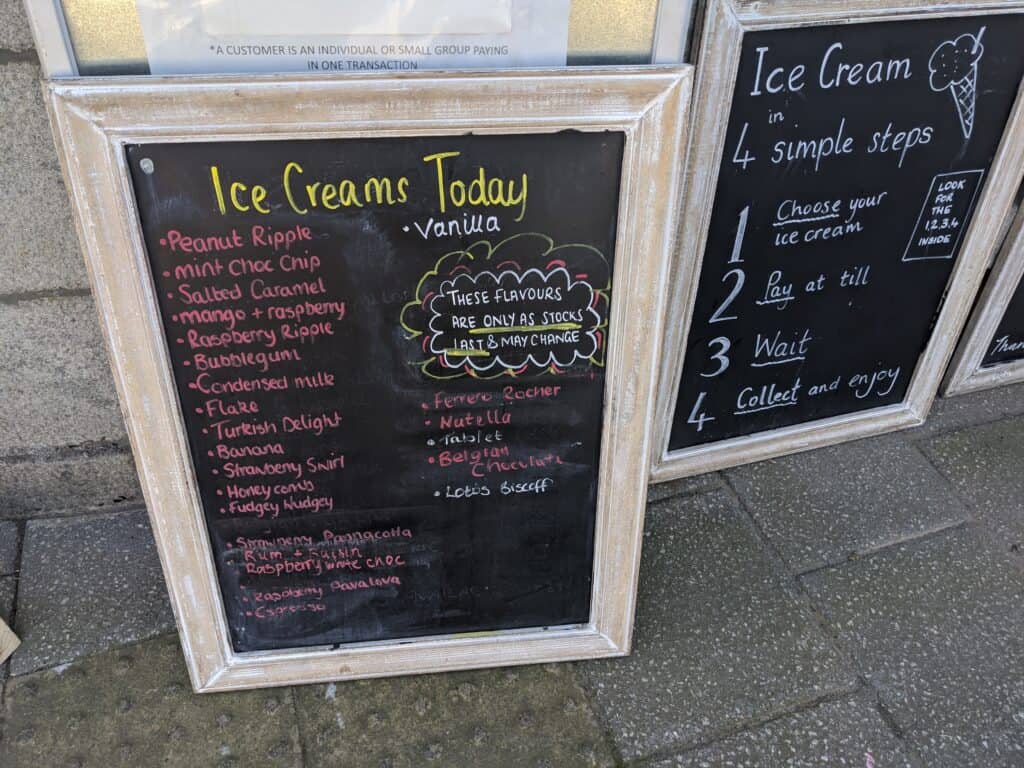 *A CUSTOMER IS AN INDIVIDUAL OR SMALL GROUP PAYING
IN ONE TRANSACTION
Ice Creams Today
• Peanut Ripple
• mint Choc Chip
• Salted Caramel
• mango + raspberry
• Raspberry Ripple
• Bubblegum
• Condensed milk
• Flake
• Turkish Delight
• Banana
• Strawberry Swirl
• Honeycomb
• Fudgey Wudgey
• Strawberry Pannacotta
• Rum + Raisin
• Raspberry white choc
• Raspberry Pavalova
• Espresso
• Vanilla
THESE FLAVOURS
ARE ONLY AS STOCKS
LAST & MAY CHANGE
• Ferrero Rocher
• Nutella
• Tablet
• Belgian
Chocolate
• Lotus Biscoff
Ice Cream
in
4 simple steps
LOOK
FOR
THE
1,2,3,4
INSIDE
1 Choose your
ice cream
2 Pay at till
3 Wait
4 Collect and enjoy